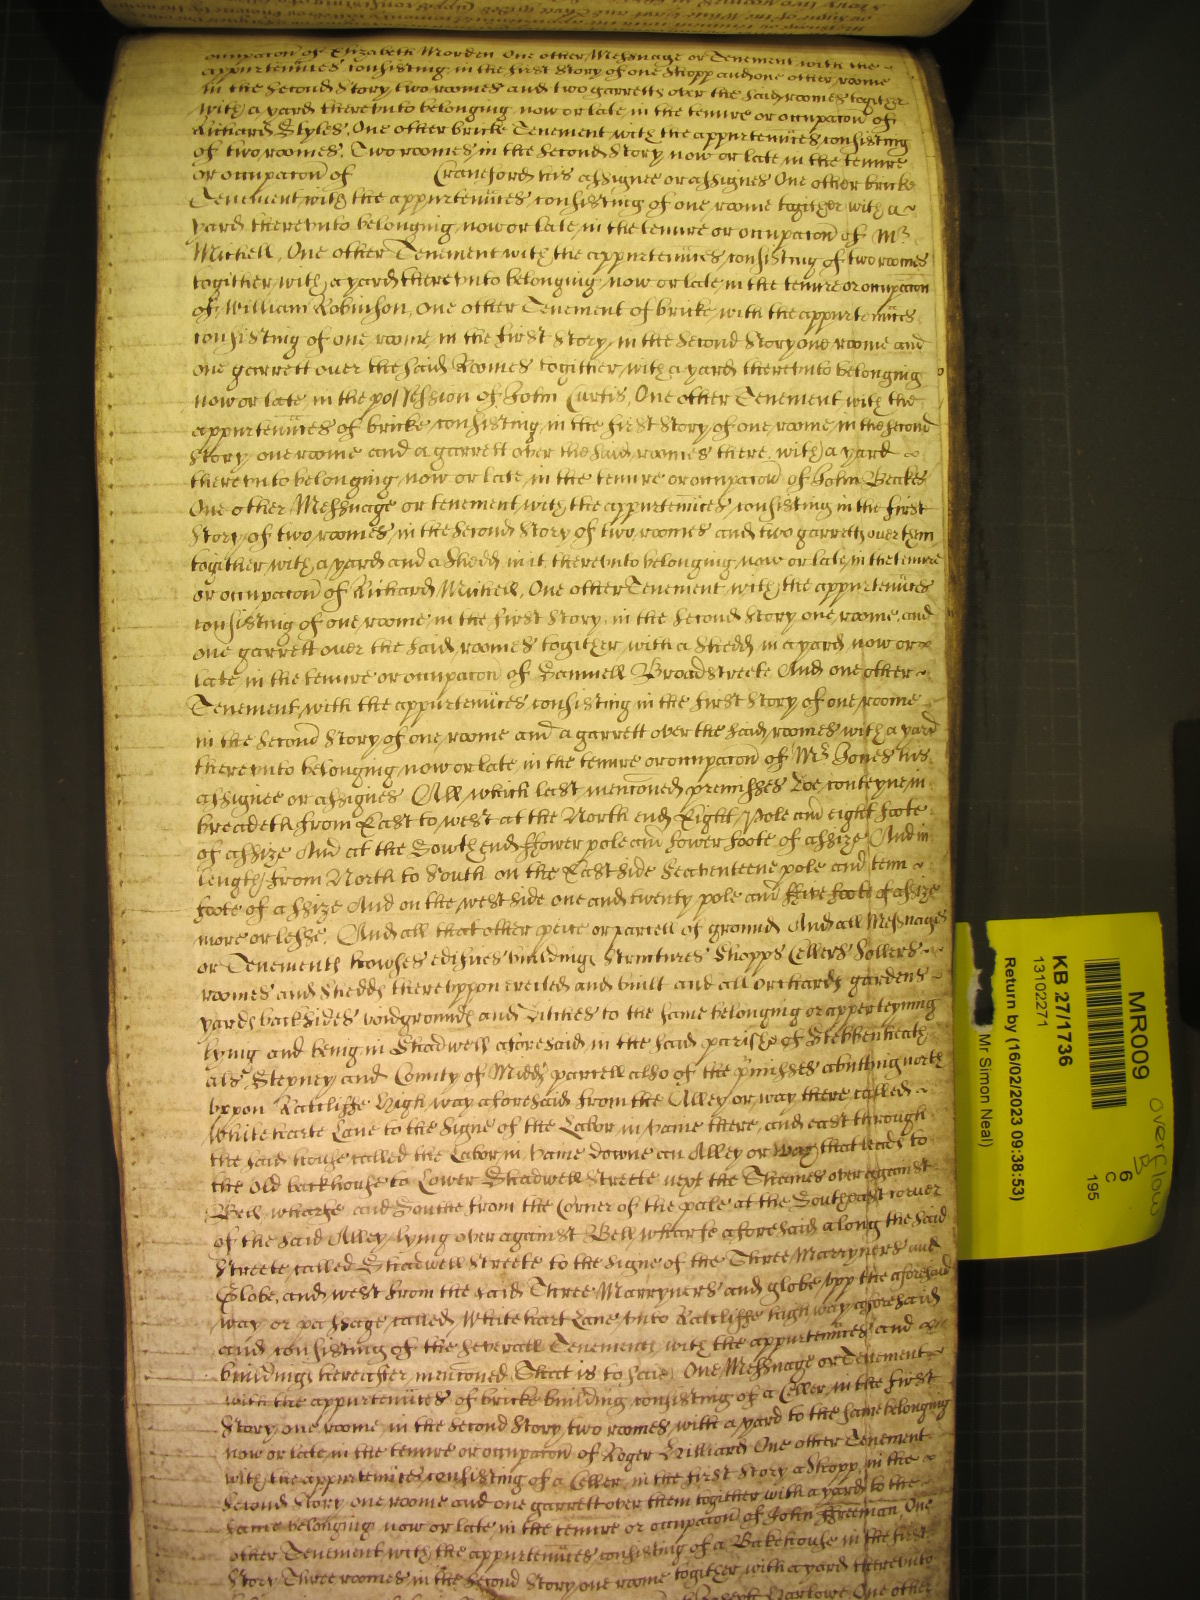 occupac̄on of Elizabeth Morden One other Messuage or Tenement with the
appurten̄nces consisting in the first Story of one Shopp and one other roome
in the Second Story two roomes and two garretts over the said roomes togither
with a yard therevnto belonging now or late in the tenure or occupac̄on of
Richard Styles, One other bricke Tenement with the appurten̄nces consisting
of two roomes, Two roomes in the Second Story now or late in the tenure
or occupac̄on of Craneford his assignee or assignes One other bricke
Tenement with the appurten̄nces consisting of one roome togither with a
yard therevnto belonging now or late in the tenure or occupac̄on of Mr
Michell, One other Tenement with the appurten̄nces consisting of two roomes
togither with a yard therevnto belonging now or late in the tenure or occupac̄on
of William Robinson, One other Tenement of bricke with the appurten̄nces
consisting of one roome in the first Story, in the Second Story one roome and
one garrett over the said Roomes togither with a yard therevnto belonging
now or late in the possession of John Curtis, One other Tenement with the
appurten̄nces of bricke consisting in the first Story of one roome in the second
Story one roome and a garrett over the said roomes there with a yard
therevnto belonging now or late in the tenure or occupac̄on of John Beakes
One other Messuage or tenement with the appurten̄nces consisting in the first
Story of two roomes in the Second Story of two roomes and two garretts over them
togither with a yard and a Shedd in it therevnto belonging now or late in the tenure
or occupac̄on of Richard Michell, One other Tenement with the appurten̄nces
consisting of one roome in the first Story, in the Second Story one roome and
one garrett over the said roomes togither with a Shedd in a yard now or
late in the tenure or occupac̄on of Samuell Broadstreete And one other
Tenement with the appurten̄nces consisting in the first Story of one roome
in the Second Story of one roome and a garrett over the said roomes with a yard
therevnto belonging now or late in the tenure or occupac̄on of Mr Jones his
assignee or assignes All which last menc̄oned premisses doe conteyne in
breadeth from East to west at the North end Eight Pole and eight foote
of assize And at the South end ffower pole and fower foote of assize And in
length from North to South on the East side Seaventeene pole and tenn
foote of assize And on the west side one and twenty pole and ffive foote of assize
more or lesse, And all that other peice or parcell of ground And all Messuages
or Tenements howses edifices buildings Structures Shopps Cellers Sollers
roomes and Shedds therevppon erected and built and all orchards gardens
yards backsides voidgrounds and Vtilties to the same belonging or apperteyning
lying and being in Shadwell aforesaid in the said parishe of Stebbenheath
als̄ Stepney and County of Midd parcell also of the p̄misses abutting north
vppon Ratcliffe High way aforesaid from the Alley or way there called
White harte Lane to the Signe of the Labor in vaine there, and east through
the said house called the Labor in vaine downe an Alley or way that leades to
the Old backhouse to Lower Shadwell Streete next the Thames over against
Bell wharfe and Southe from the Corner of the pale at the South east corner
of the said Alley lying over against Bell wharfe aforesaid along the said
Streete called Shadwell Streete to the Signe of the Three Marryners and
Globe, and west from the said Three Marryners and globe vpp the aforesaid
way or passage called White hart Lane vnto Ratcliffe high way aforesaid
and consisting of the severall Tenements with the appurten̄nces and
buildings hereafter menc̄oned That is to saie One Messuage or Tenement
with the appurten̄nces of bricke building consisting of a Celler in the first
Story one roome in the Second Story two roomes with a yard to the same belonging
now or late in the tenure or occupac̄on of Roger Hilliard One other Tenement
with the appurten̄nces consisting of a Celler in the first Story a Shopp in the
Second Story one roome and one garrett over them togither with a yard to the
same belonging now or late in the tenure or occupac̄on of John ffreeman, One
other Tenement with the appurten̄nces consisting of a Bakehouse in the first
Story Three roomes in the Second Story one roome togither with a yard therevnto
Harlowe One other
MR009
overflow
B
6
C
195
KB 27/1736
13102271
Return by (16/02/2023 09:38:53)
Mr Simon Neal)